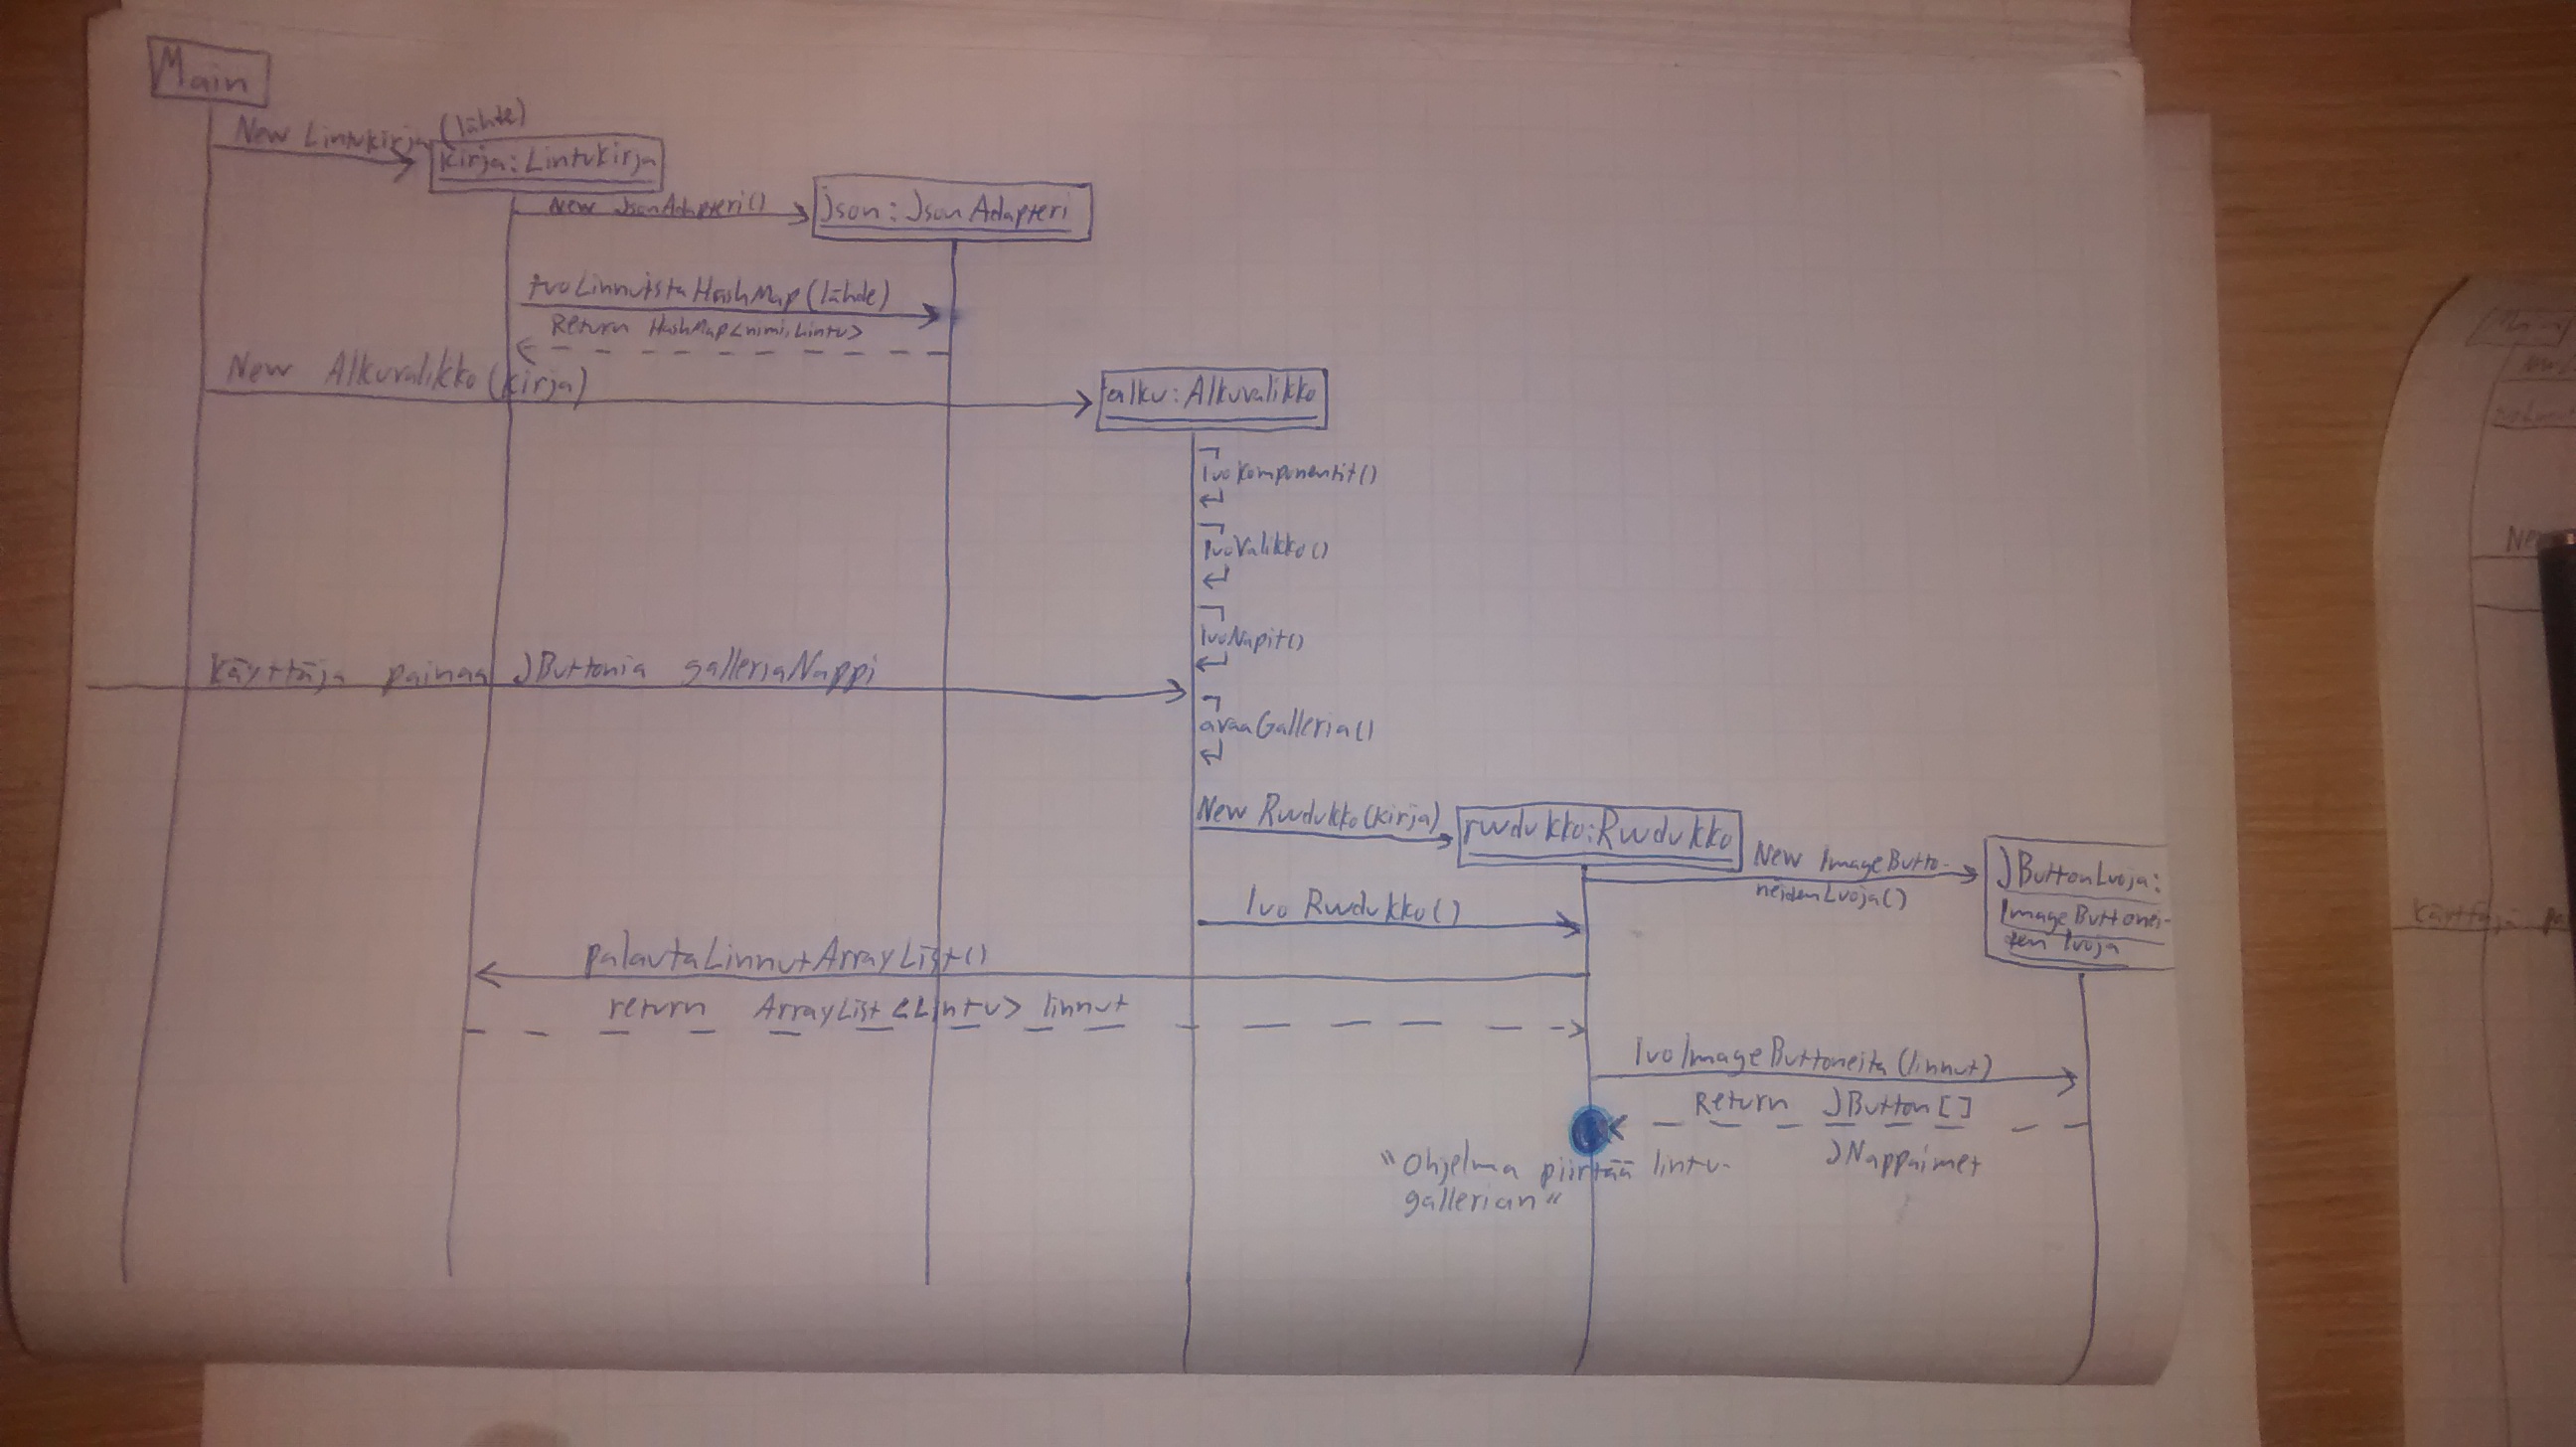 Main
New Lintukirja (lähde)
kirja:Lintukirja
New JsonAdapteri()
json:JsonAdapteri
tuoLinnuistaHashMap(lähde)
Return HashMap<nimi, Lintu>
New Alkuvalikko(kirja)
alku:Alkuvalikko
luoKomponentit()
luoValikko()
luoNapit()
Käyttäjä painaa JButtonia galleriaNappi
avaaGalleria()
New Ruudukko(kirja)
ruudukko:Ruudukko
New ImageButto-
neidenLuoja()
JButtonLuoja:
ImageButtonei-
den luoja
luo Ruudukko()
palautaLinnutArrayList()
return ArrayList<Lintu> linnut
luoImageButtoneita(linnut)
Return JButton[]
JNappaimet
"Ohjelma piirtää lintu-
gallerian"
Käyttäjä